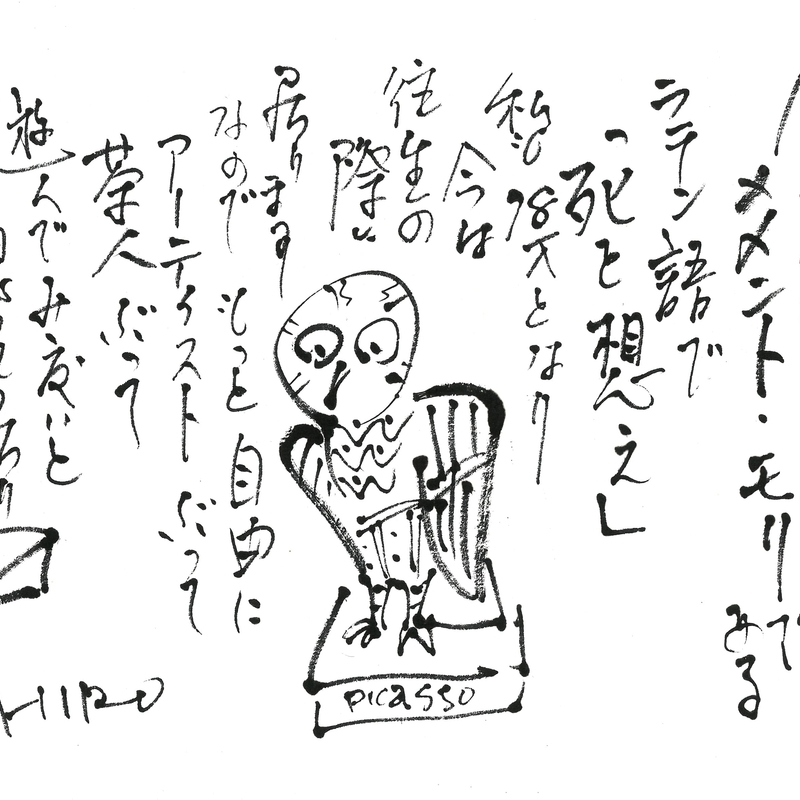 メメント・モリ
ある
ラテン語で
「死を想え」
私も78才となり
今は
往生の
際に
居ります
なので もっと自由に
アーティスト ぶって
茶人 ぶって
遊んでみ度いと
picasso
HIRO